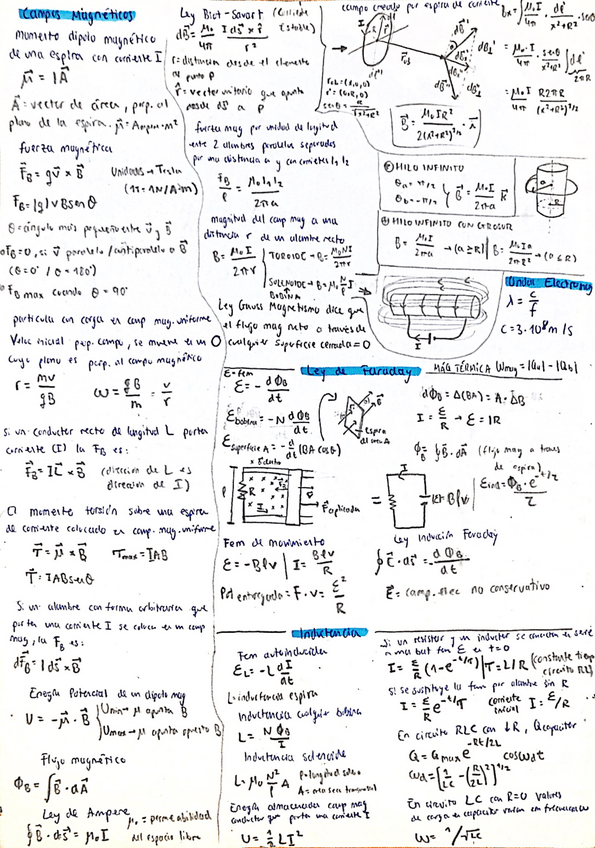 Campos Magnéticos
momento dipolo magnético
de una espira con corriente I
μ⃗ = IA⃗
A⃗ = vector de área, perp. al
plano de la espira. μ⃗ = Ampere·m²
fuerza magnética
F⃗B = qv⃗ × B⃗
Unidades → Tesla
(1T = 1N/A·m)
FB = |q|vBsenθ
θ = ángulo más pequeño entre v⃗ y B⃗
FB = 0, si v⃗ paralelo / antiparalelo a B⃗
(θ = 0° / θ = 180°)
FB max cuando θ = 90°
partícula con carga en camp mag. uniforme
Veloc inicial perp. campo, se mueve en un O
cuyo plano es perp. al campo magnético
r = mv/qB   ω = qB/m = v/r
Si un conductor recto de longitud L porta
corriente (I) la FB es:
F⃗B = IL⃗ × B⃗ (dirección de L es
dirección de I)
El momento torsión sobre una espira
de corriente colocado en camp. mag. uniforme
τ⃗ = μ⃗ × B⃗   τmax = IAB
τ⃗ = IABsenθ
Si un alambre con forma arbitraria que
porta una corriente I se coloca en un camp
mag, la FB es:
dF⃗B = I ds⃗ × B⃗
Energía Potencial de un dipolo mag
U = -μ⃗ · B⃗ { Umin → μ apunta B
Umax → μ apunta opuesto B
Flujo magnético
ΦB = ∫B⃗ · dA⃗
Ley de Ampere
∮B⃗ · ds⃗ = μ₀I
μ₀ = permeabilidad
del espacio libre
Ley Biot-Savart (corriente
estable)
dB⃗ = μ₀/4π I ds⃗ × r̂/r²
r = distancia desde el elemento
al punto P
r̂ = vector unitario que apunta
desde ds⃗ a P
fuerza mag por unidad de longitud
entre 2 alambres paralelos separados
por una distancia a y con corrientes I₁ I₂
FB/l = μ₀I₁I₂/2πa
magnitud del camp mag a una
distancia r de un alambre recto
B = μ₀I/2πr
TOROIDE → B = μ₀NI/2πr
SOLENOIDE → B = μ₀ N/l I
BOBINA
Ley Gauss Magnetismo dice que
el flujo mag neto a través de
cualquier superficie cerrada = 0
campo creado por espira de corriente
B⃗ = μ₀IR²/2(x²+R²)^3/2 · i⃗
HILO INFINITO
θa = π/2
θb = -π/2
B⃗ = μ₀I/2πa k⃗
HILO INFINITO CON GROSOR
B = μ₀I/2πa → (a ≥ R) | B = μ₀Ia/2πR² → (a ≤ R)
Ondas Electromag
λ = c/f
c = 3·10⁸ m/s
Ley de Faraday
ε-fem
ε = - dΦB/dt
εbobina = -N dΦB/dt
εsuperficie A = - d/dt (BA cosθ)
Espira
de area A
MÁQ TÉRMICA Wmaq = |Qa| - |Qb|
dΦB = Δ(BA) = A · ΔB
I = ε/R → ε = IR
ΦB = ∮B⃗ · dA⃗ (flujo mag a traves
de espira)
Fem de movimiento
ε = -Blv | I = Blv/R
Pot entregada = F · v = ε²/R
Ley inducción Faraday
∮E⃗ · ds⃗ = - dΦB/dt
E⃗ = camp. elec no conservativo
Inductancia
Fem autoinducida
εL = -L dI/dt
L = inductancia espira
Inductancia cualquier bobina
L = NΦB/I
Inductancia solenoide
L = μ₀ N²/l A
A = area secc transversal
Energía almacenada camp mag
conductor que porta una corriente I
U = ½ LI²
Si un resistor y un inductor se conectan en serie
a una bat fem ε en t = 0
I = ε/R (1 - e^-t/τ) | τ = L/R (constante tiempo
circuito RL)
Si se sustituye la fem por alambre sin R
I = ε/R e^-t/τ
corriente
inicial I = ε/R
En circuito RLC con ↓R, Q capacitor
Q = Qmax e^-Rt/2L cos ωd t
ωd = [1/LC - (R/2L)²]^1/2
En circuito LC con R=0 valores
de carga en capacitor varian con frecuencia
ω = 1/√LC